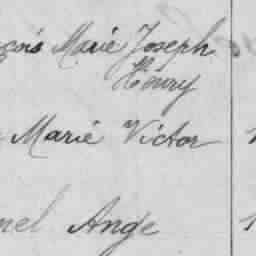 çois Marie Joseph
Henry
Marie Victor
nel Ange